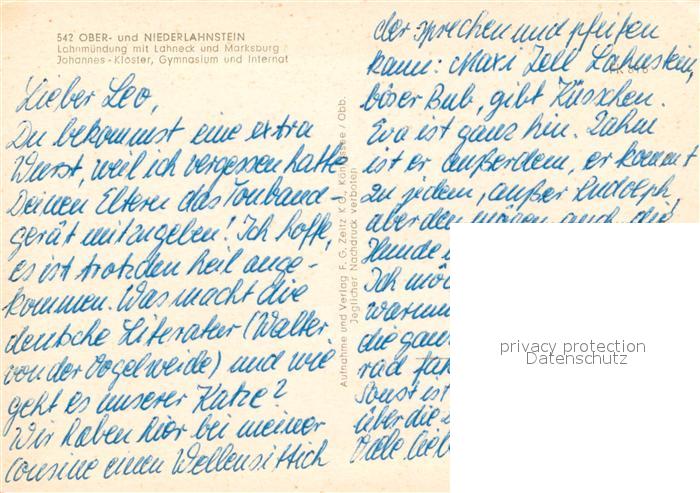 542 OBER- und NIEDERLAHNSTEIN
Lahnmündung mit Lahneck und Marksburg
Johannes-Kloster, Gymnasium und Internat
Lieber Leo,
Du bekommst eine extra
Wurst, weil ich vergessen hatte
Deinen Eltern das Tonband-
gerät mitzugeben! Ich hoffe,
es ist trotzden heil ange-
kommen. Was macht die
deutsche Literatur (Walter
von der Vogelweide) und wie
geht es unserer Katze?
Wir haben hier bei meiner
Cousine einen Wellensittich
Aufnahme und Verlag F. G. Zeitz KG., Königssee / Obb.
Jeglicher Nachdruck verboten
der sprechen und pfeifen
kann: Maxi Zell Lahnstein,
böser Bub, gibt Küsschen.
Eva ist ganz hin. Zahm
ist er außerdem, er kommt
zu jedem, außer Rudolph,
aber den mögen auch die
Hunde
Ich
warum
die
rad
Sonst ist
über die
Viele
privacy protection
Datenschutz